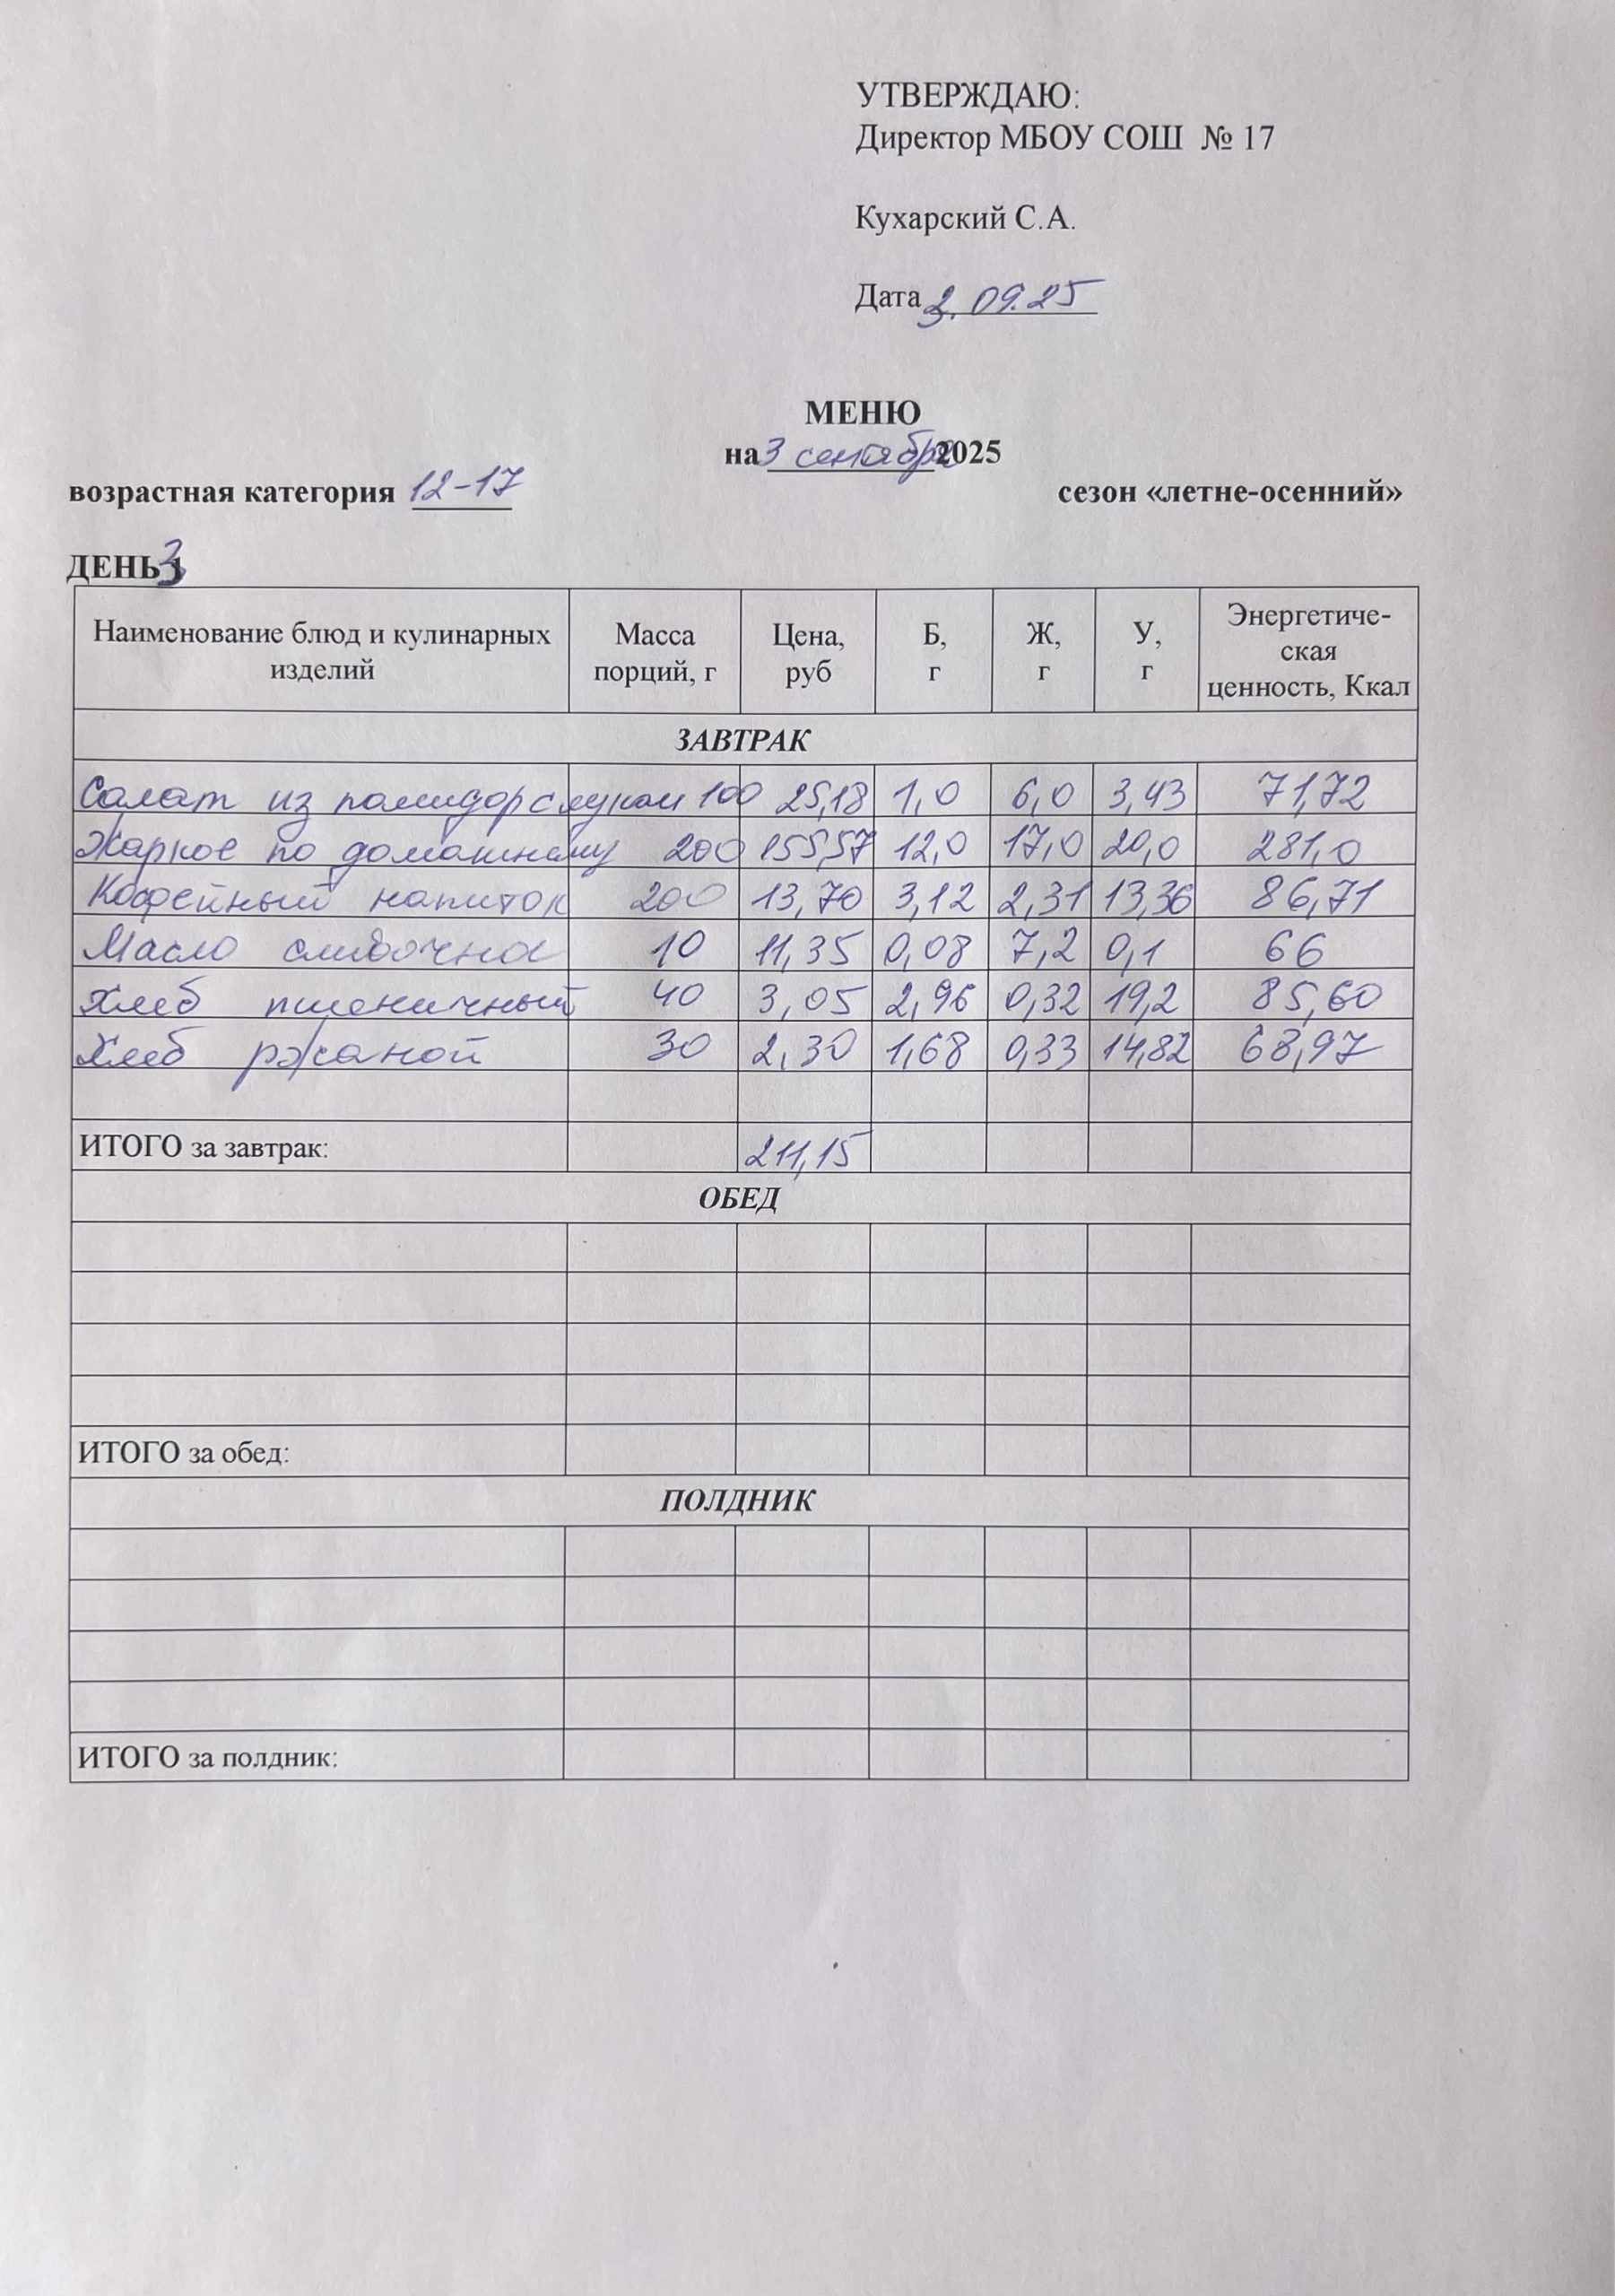 УТВЕРЖДАЮ:
Директор МБОУ СОШ № 17
Кухарский С.А.
Дата 3.09.25
МЕНЮ
на 3 сентября 2025
возрастная категория 12-17 сезон «летне-осенний»
ДЕНЬ 3
Наименование блюд и кулинарных изделий Масса порций, г Цена, руб Б, г Ж, г У, г Энергетиче-ская ценность, Ккал
ЗАВТРАК
Салат из помидор с луком 100 25,18 1,0 6,0 3,43 71,72
Жаркое по домашнему 200 155,57 12,0 17,0 20,0 281,0
Кофейный напиток 200 13,70 3,12 2,31 13,36 86,71
Масло сливочное 10 11,35 0,08 7,2 0,1 66
Хлеб пшеничный 40 3,05 2,96 0,32 19,2 85,60
Хлеб ржаной 30 2,30 1,68 0,33 14,82 68,97
ИТОГО за завтрак: 211,15
ОБЕД
ИТОГО за обед:
ПОЛДНИК
ИТОГО за полдник: